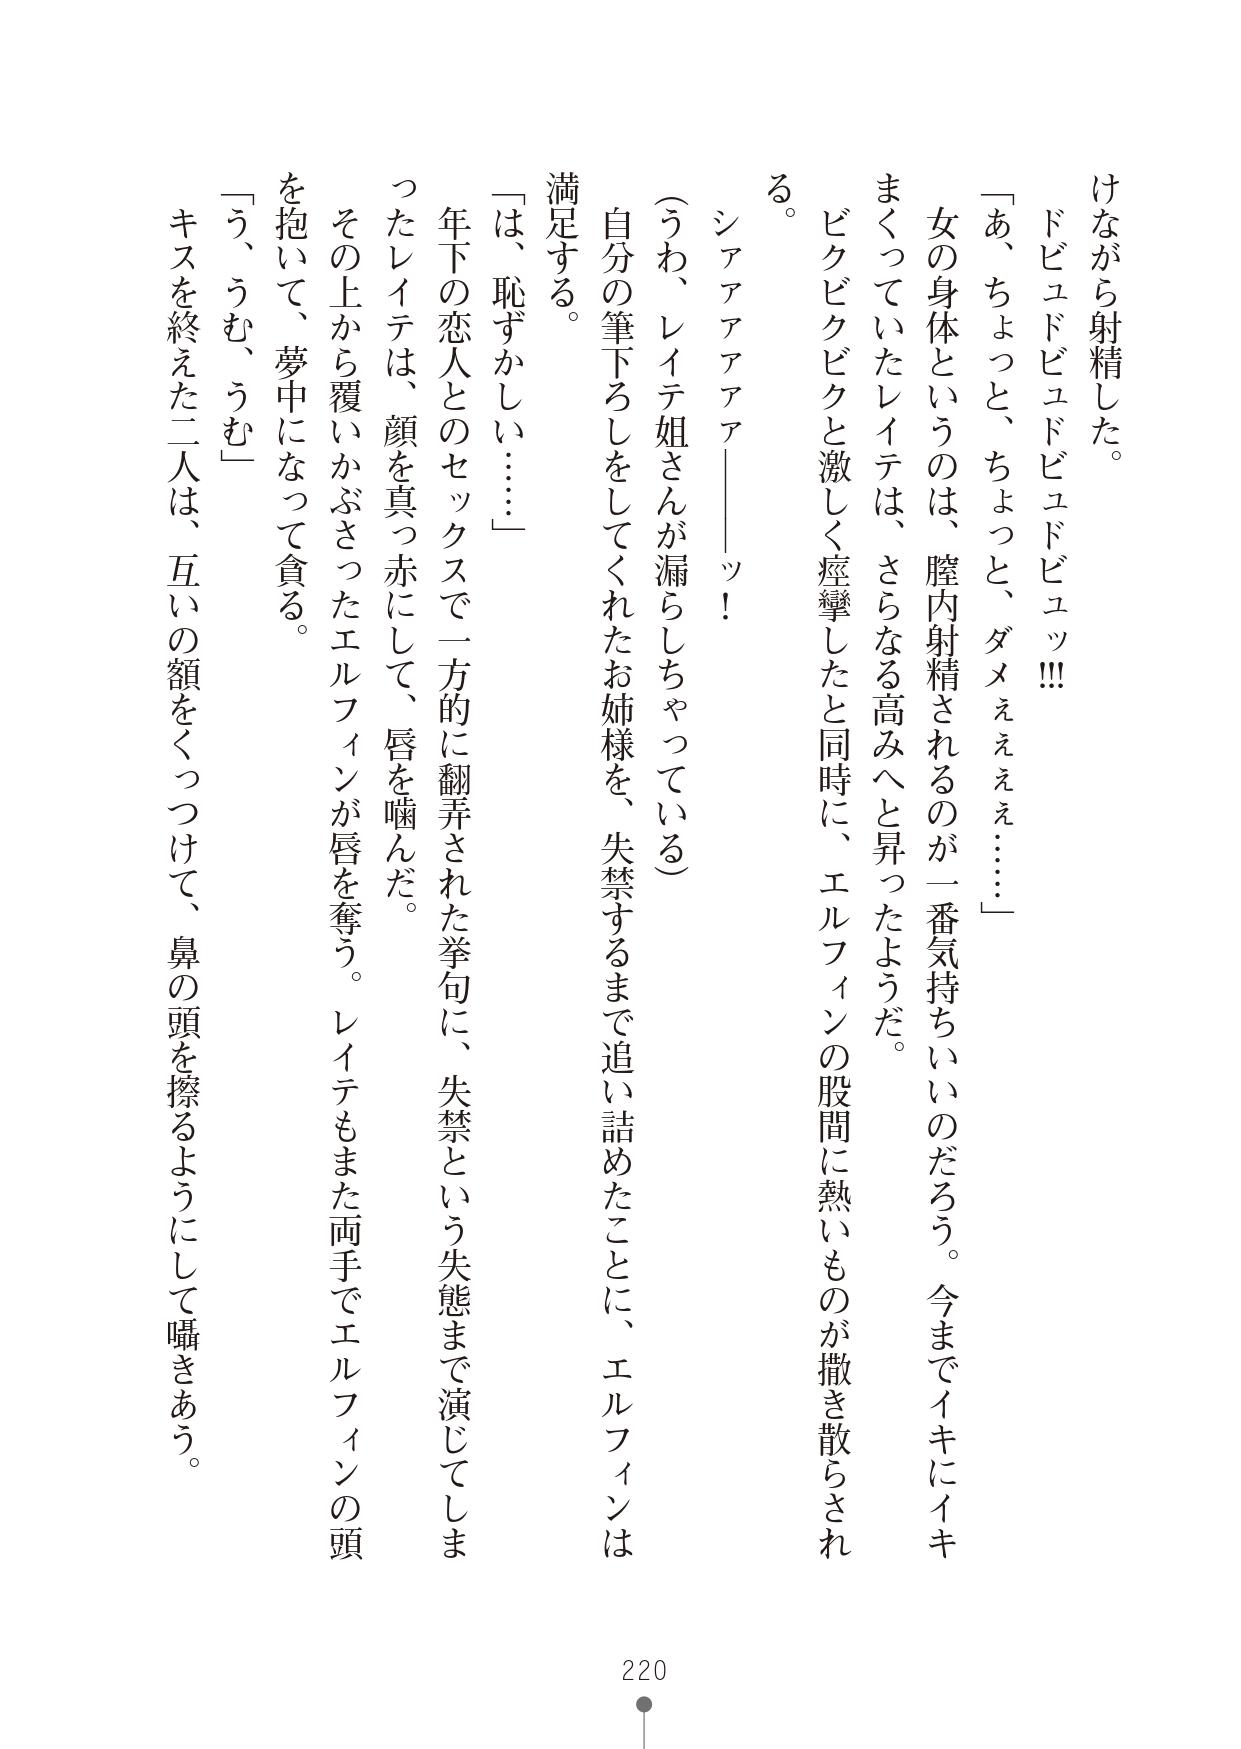 けながら射精した。
ドビュドビュドビュドビュッ!!!
「あ、ちょっと、ちょっと、ダメぇぇぇぇ……」
女の身体というのは、膣内射精されるのが一番気持ちいいのだろう。今までイキにイキ
まくっていたレイテは、さらなる高みへと昇ったようだ。
ビクビクビクと激しく痙攣したと同時に、エルフィンの股間に熱いものが撒き散らされ
る。
シァァァァァァ―――ッ！
（うわ、レイテ姐さんが漏らしちゃっている）
自分の筆下ろしをしてくれたお姉様を、失禁するまで追い詰めたことに、エルフィンは
満足する。
「は、恥ずかしい……」
年下の恋人とのセックスで一方的に翻弄された挙句に、失禁という失態まで演じてしま
ったレイテは、顔を真っ赤にして、唇を噛んだ。
その上から覆いかぶさったエルフィンが唇を奪う。レイテもまた両手でエルフィンの頭
を抱いて、夢中になって貪る。
「う、うむ、うむ」
キスを終えた二人は、互いの額をくっつけて、鼻の頭を擦るようにして囁きあう。
220